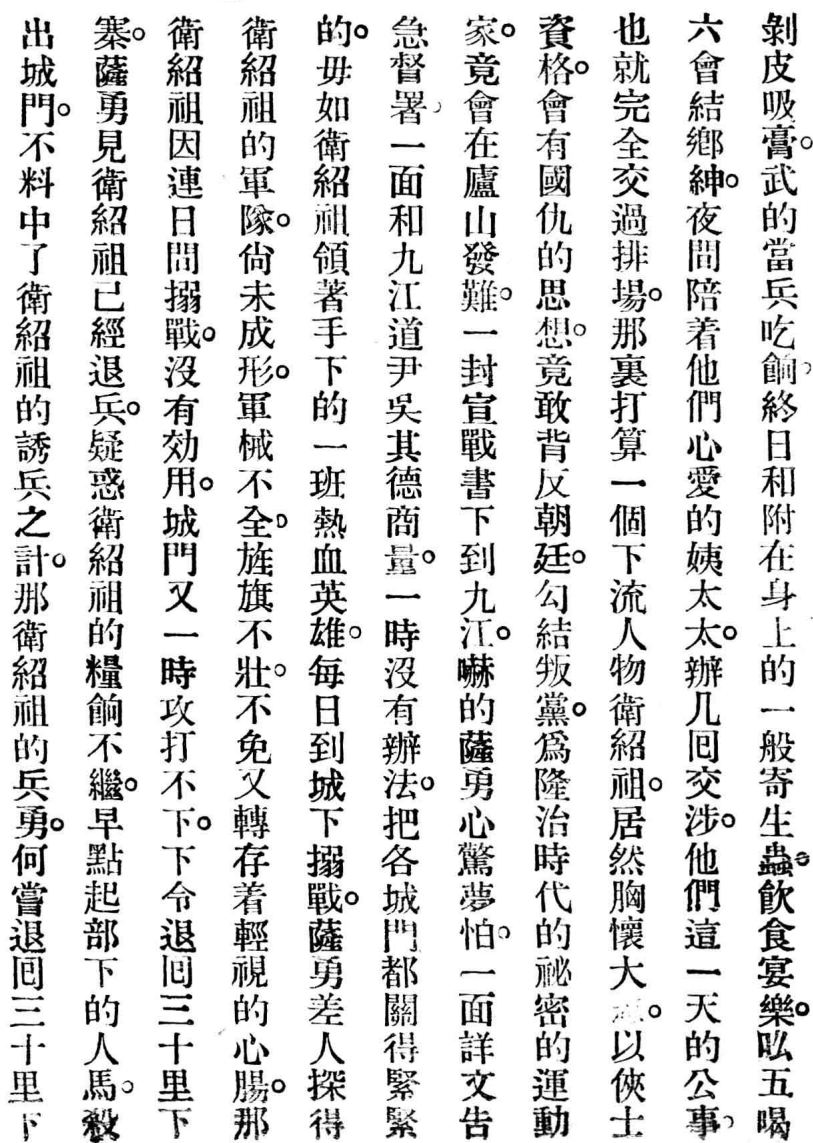 剝皮吸膏。武的當兵吃餉、終日和附在身上的一般寄生蟲。飲食宴樂。吆五喝
六會結鄕紳。夜間陪着他們心愛的姨太太。辦几囘交涉。他們這一天的公事、
也就完全交過排場。那裏打算一個下流人物衛紹祖。居然胸懷大。以俠士
資格。會有國仇的思想。竟敢背反朝廷。勾結叛黨。爲隆治時代的祕密的運動
家。竟會在廬山發難。一封宣戰書下到九江。嚇的薩勇心驚夢怕。一面詳文告
急督署、一面和九江道尹吳其德商量。一時沒有辦法。把各城門都關得緊緊
的。毋如衛紹祖領著手下的一班熱血英雄。每日到城下搦戰。薩勇差人探得
衛紹祖的軍隊。尙未成形。軍械不全。旌旗不壯。不免又轉存着輕視的心腸。那
衛紹祖因連日間搦戰。沒有効用。城門又一時攻打不下。下令退囘三十里下
寨。薩勇見衛紹祖已經退兵。疑惑衛紹祖的糧餉不繼。早點起部下的人馬。殺
出城門。不料中了衛紹祖的誘兵之計。那衛紹祖的兵勇。何嘗退囘三十里下